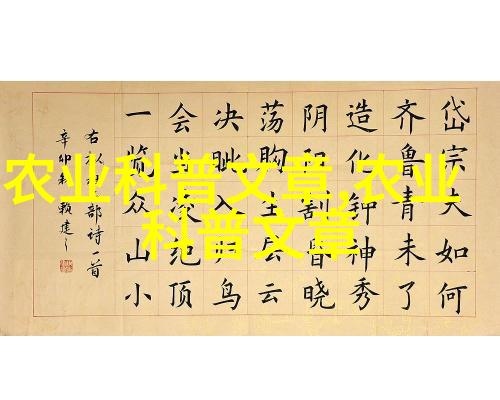 农业科普文章,农业
科普文章
岱宗夫如何
齐鲁青未了
造化钟神秀
阴阳割昏晓
荡胸生层云
决眦入归鸟
会当凌绝顶
一览众山小
右 部诗一首
辛卯